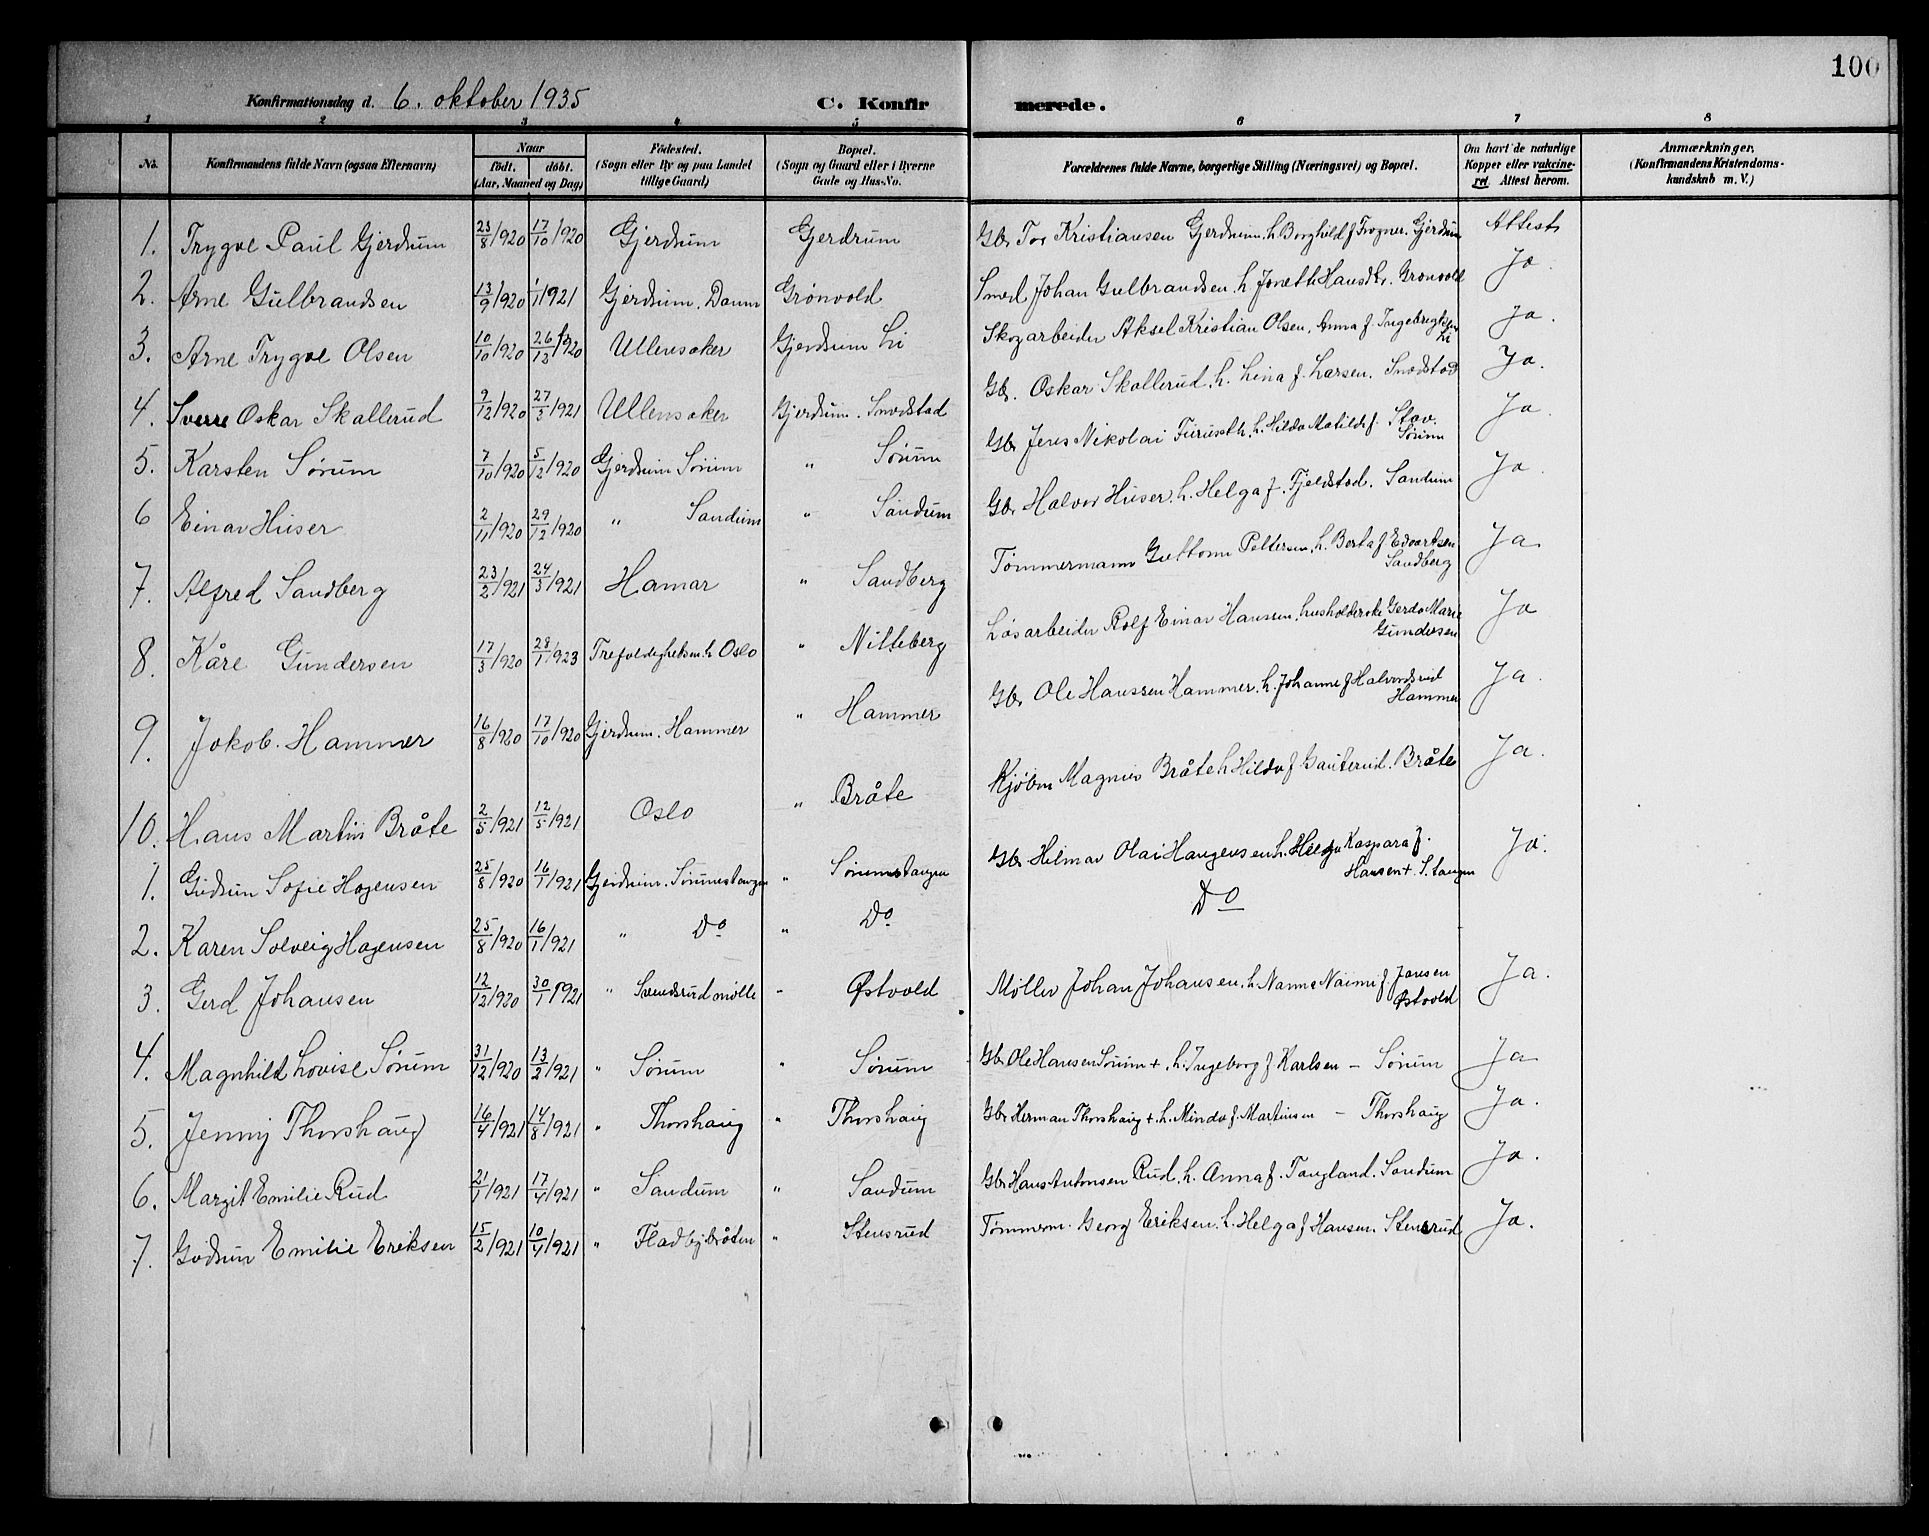 100
Konfirmationsdag d. 6. oktober 1935 C. Konfirmerede.
1 2 3 4 5 6 7 8
No. Konfirmandens fulde Navn (ogsaa Efternavn) Naar født. døbt. (Aar, Maaned og Dag) Fødested. (Sogn eller By og paa Landet tillige Gaard) Bopæl. (Sogn og Gaard eller i Byerne Gade og Hus-No. Forældrenes fulde Navne, borgerlige Stilling (Næringsvei) og Bopæl. Om havt de naturlige Kopper eller vakcineret. Attest herom. Anmærkninger. (Konfirmandens Kristendomskundskab m. V.)
1. Trygve Paul Gjerdrum 23/8/920 17/10/920 Gjerdrum Gjerdrum Gbr Tor Kristiansen Gjerdrum. h. Borghild f Frogner. Gjerdrum Attest
2. Arne Gulbrandsen 13/9/920 1/1921 Gjerdrum. Grønvold Smed Johan Gulbrandsen. h. Grønvold Ja.
3. Arne Trygve Olsen 10/10/920 26/12/920 Ullensaker Gjerdrum Li Skogarbeider Aksel Kristian Olsen. Anna f. Ingebregtsen Li Ja.
4. Sverre Oskar Skallerud 9/12/920 27/3/921 Ullensaker Gjerdrum. Smedstad Gbr. Oskar Skallerud. h. Lina f. Larsen. Smedstad Ja.
5. Karsten Sørum 7/10/920 5/12/920 Gjerdrum Sørum " Sørum Gbr Jens Nikolai Furuseth. h. Hilda Matilde f. Stav. Sørum Ja
6 Einar Huser 2/11/920 29/12/920 " Sandum " Sandum Gbr Halvor Huser. h. Helga f. Fjeldstad. Sandum Ja.
7. Alfred Sandberg 23/2/921 24/3/921 Hamar " Sandberg Tømmermann Guttorm Pettersen. h. Berta f Edvardsen Sandberg Ja
8. Kåre Gundersen 17/3/920 28/1/923 Trefoldighetsm.h Oslo " Nitteberg Løsarbeider Rolf Einar Hansen, husholderske Gerda Marie Gundersen Ja
9. Jakob. Hammer 16/8/920 17/10/920 Gjerdrum. Hammer " Hammer Gbr Ole Hanssen Hammer. h. Johanne f Halvordsrud Hammer Ja.
10. Hans Martin Bråte 2/5/921 12/5/921 Oslo " Bråte Kjøbm Magnus Bråte h Hilda f Gauterud. Bråte Ja.
1. Gudrun Sofie Hagensen 25/8/920 16/1/921 Gjerdrum. Sørumstangen " Sørumstangen Gbr Hilmar Olai Haugensen h. Helga Kaspara f. Hansen +. S. tangen Ja.
2. Karen Solveig Hagensen 25/8/920 16/1/921 " Do " Do Do
3. Gerd Johansen 12/12/920 30/1/921 " Svendsrud mølle - Østvold Møller Johan Johansen. h. Nanna Naimi f. Jansen Østvold Ja.
4. Magnhild Lovise Sørum 31/12/920 13/2/921 " Sørum " Sørum Gbr Ole Hansen Sørum +, h. Ingeborg f Karlsen - Sørum Ja
5. Jenny Thorshaug 16/4/921 14/8/921 " Thorshaug " Thorshaug Gbr Herman Thorshaug +. h. Minda f. Martinsen - Thorshaug Ja.
6. Margit Emilie Rud 21/1/921 17/4/921 " Sandum " Sandum Gbr Hans Antonsen Rud. h. Anna f. Tangland. Sandum Ja.
7. Gudrun Emilie Eriksen 15/2/921 10/4/921 " Fladbybråten " Stensrud Tømmerm. Georg Eriksen. h. Helga f Hansen. Stensrud Ja.